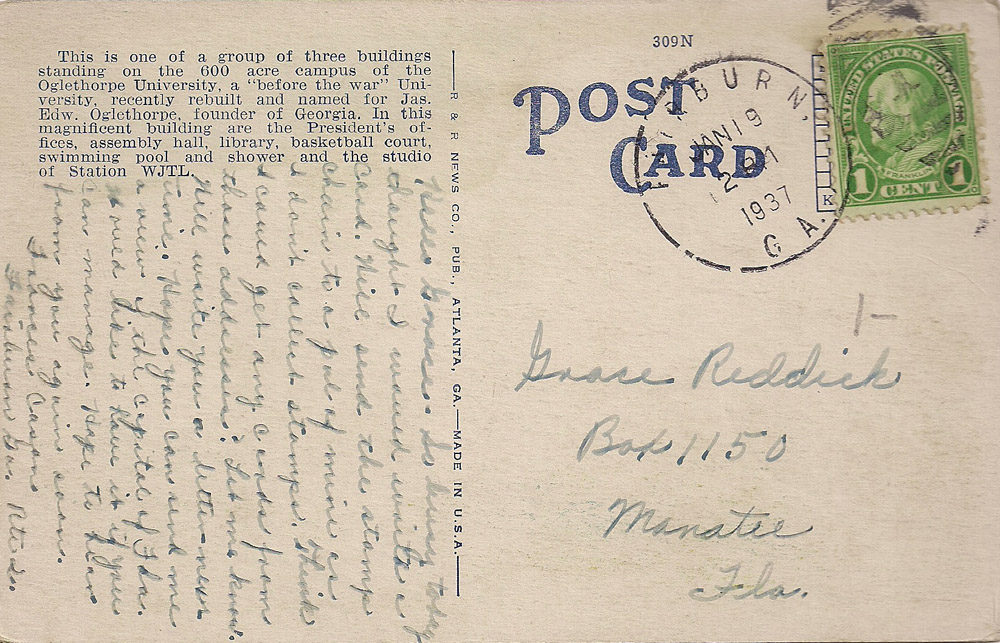 This is one of a group of three buildings
standing on the 600 acre campus of the
Oglethorpe University, a “before the war” Uni-
versity, recently rebuilt and named for Jas.
Edw. Oglethorpe, founder of Georgia. In this
magnificent building are the President's of-
fices, assembly hall, library, basketball court,
swimming pool and shower and the studio
of Station WJTL.
Hello Grace: So busy today
thought I would write a
card. Will send the stamp
chain to a pal of mine as
I don't collect stamps. Think
I could get any cards from
these addresses? Let me know.
Will write you a letter next
time. Hope you can send me
a view of the capital of Fla.
Would like to have it if you
can manage. Hope to hear
from you again soon.
Frances Cason
Fairburn Ga. Rte
R & R NEWS CO., PUB., ATLANTA, GA.—MADE IN U.S.A.
309N
POST
CARD
FAIRBURN,
JAN 19
1937
GA.
UNITED STATES POSTAGE
FRANKLIN
1 CENT 1
K
1-
Grace Reddick
Box 1150
Manatee
Fla.